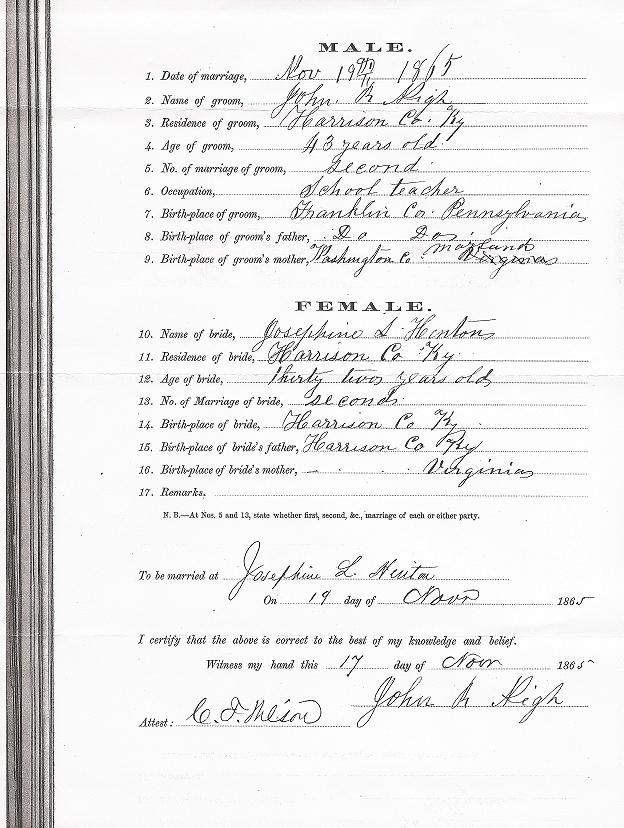 MALE.
1. Date of marriage, Nov 19th 1865
2. Name of groom, John R High
3. Residence of groom, Harrison Co. Ky
4. Age of groom, 43 years old.
5. No. of marriage of groom, Second.
6. Occupation, School teacher
7. Birth-place of groom, Franklin Co. Pennsylvania
8. Birth-place of groom's father, Do Do
9. Birth-place of groom's mother, Washington Co. Maryland Virginia
FEMALE.
10. Name of bride, Josephine L. Henton
11. Residence of bride, Harrison Co Ky.
12. Age of bride, Thirty two years old
13. No. of Marriage of bride, second.
14. Birth-place of bride, Harrison Co Ky.
15. Birth-place of bride's father, Harrison Co Ky
16. Birth-place of bride's mother, Virginia
17. Remarks.
N. B.—At Nos. 5 and 13, state whether first, second, &c., marriage of each or either party.
To be married at Josephine L.
On 19 day of Novr 1865
I certify that the above is correct to the best of my knowledge and belief.
Witness my hand this 17 day of Novr 1865
John R High
Attest: C. T. Wilson